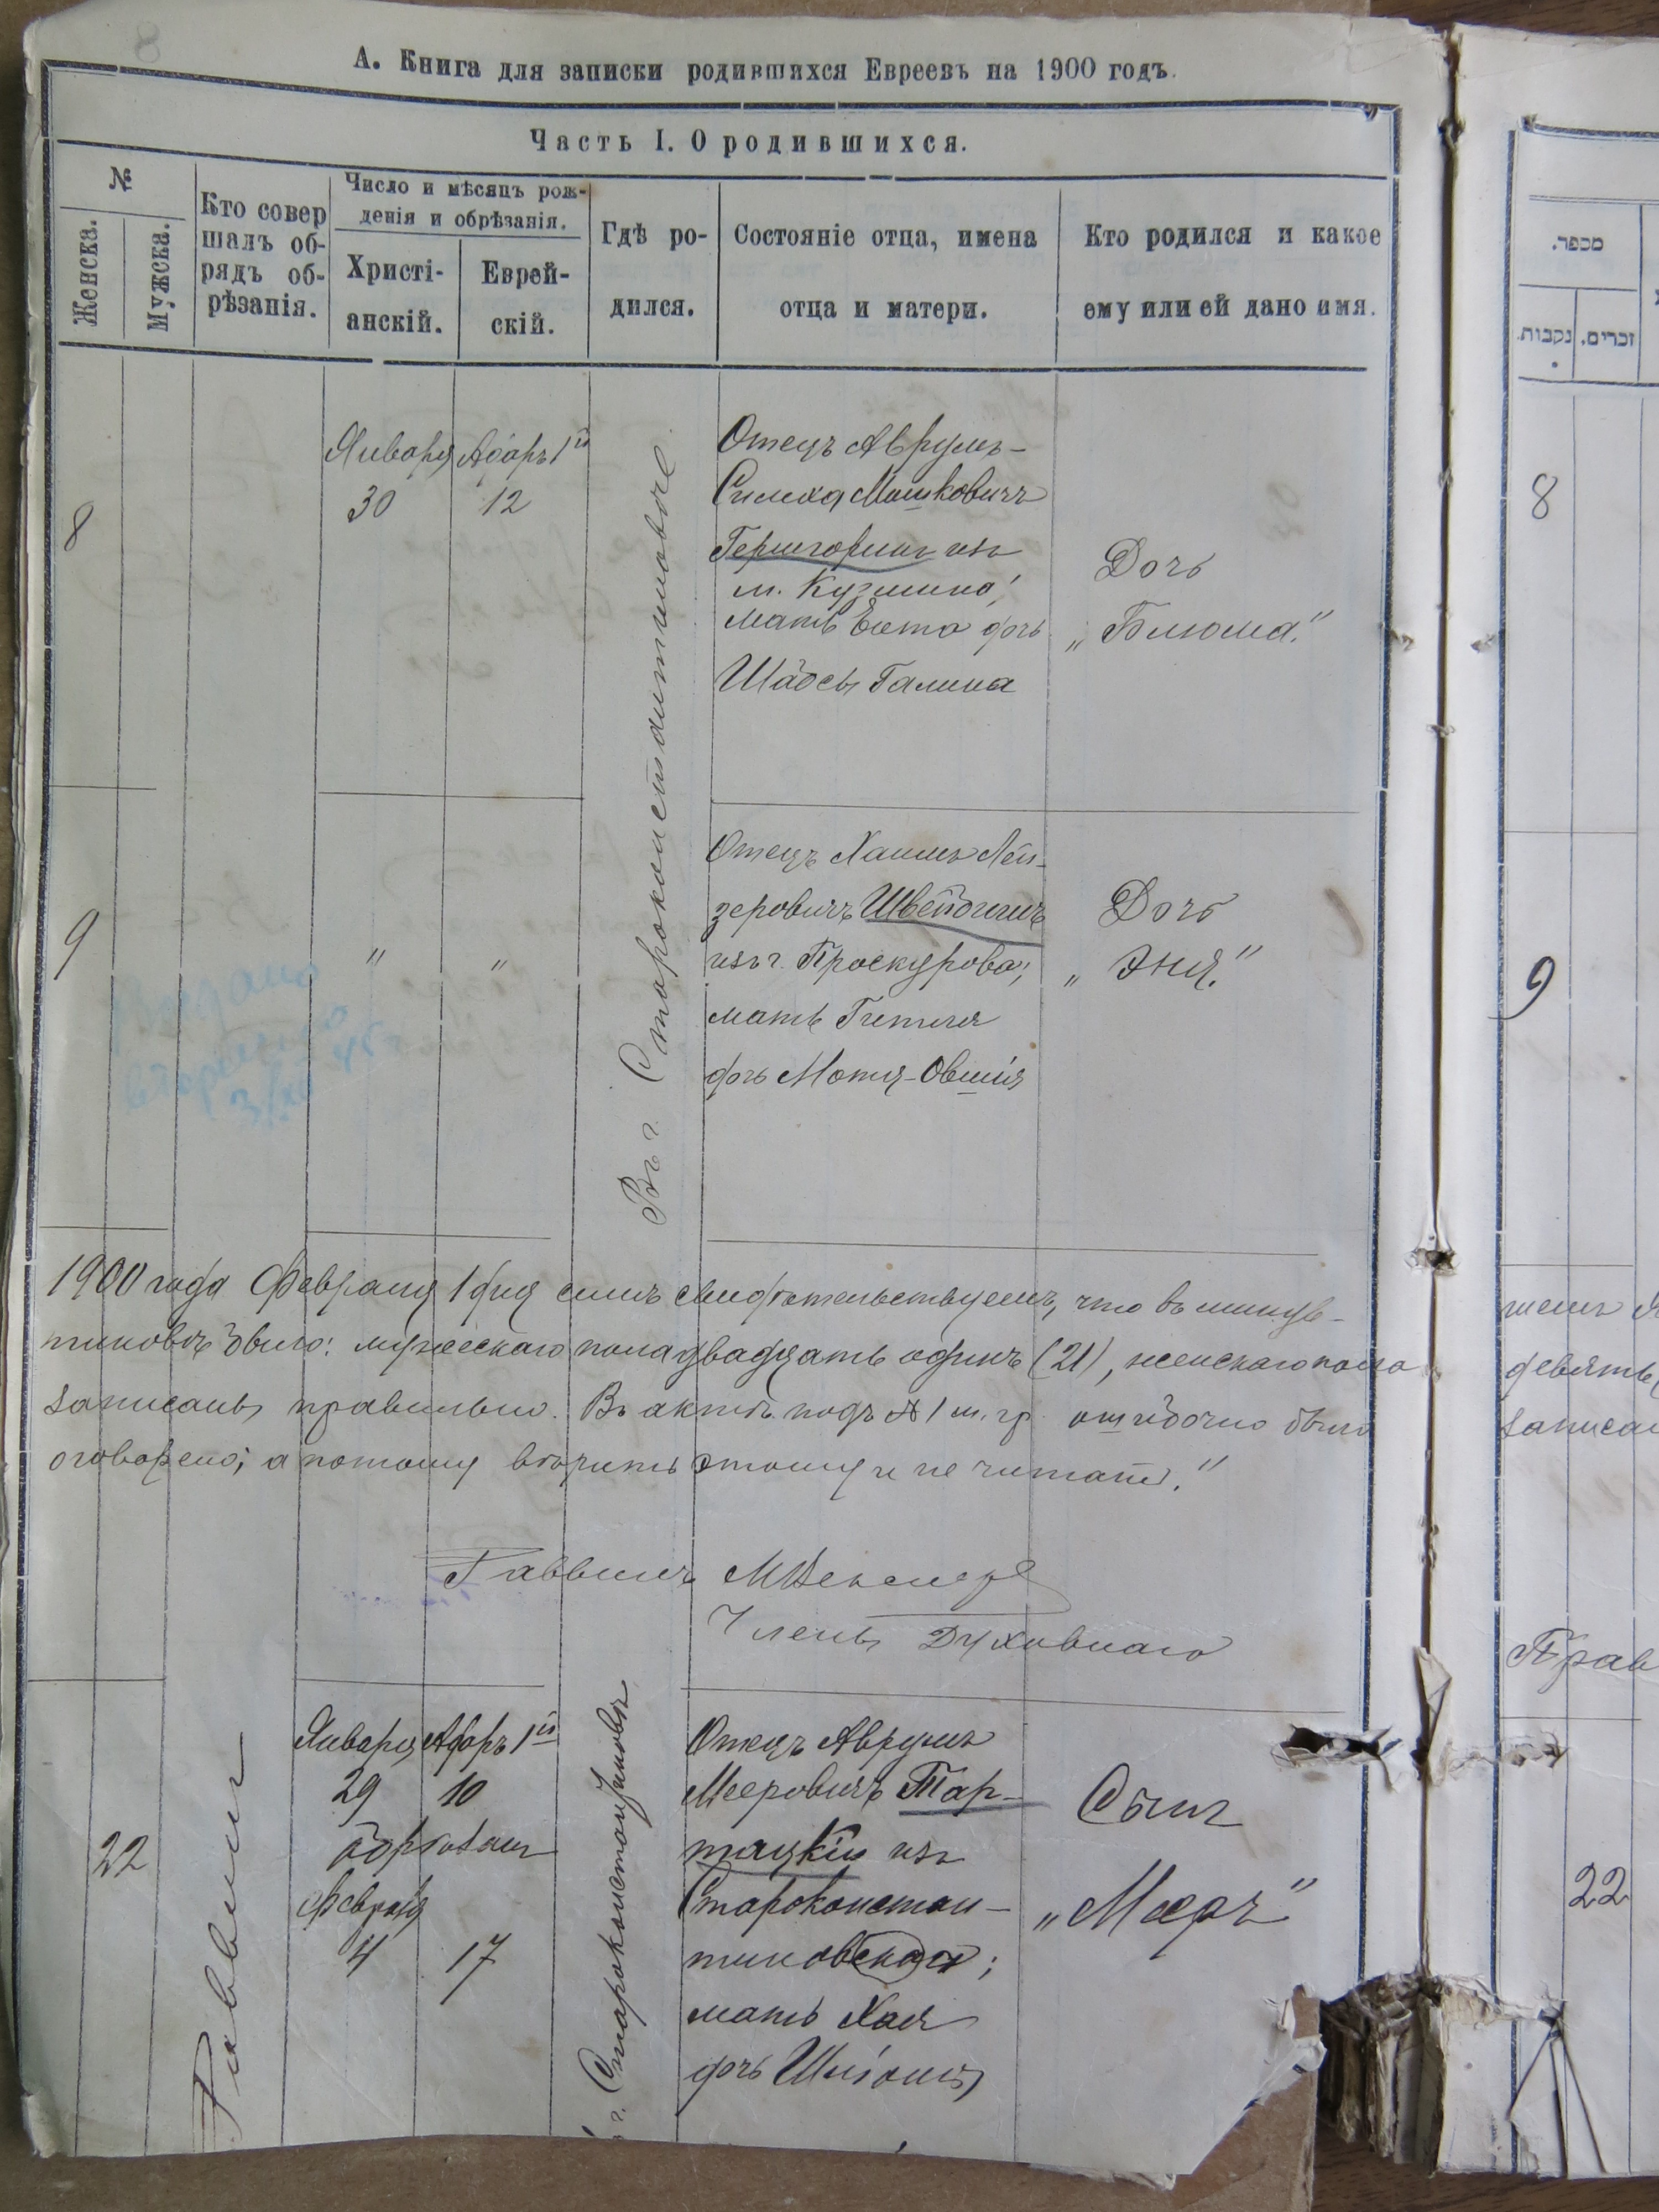 8
А. Книга для записки родившихся Евреевъ на 1900 годъ.
Часть I. О родившихся.
№
Женска.
Мужска.
Кто совер
шалъ об-
рядъ об-
рѣзанія.
Число и мѣсяцъ рож-
денія и обрѣзанія.
Христі-
анскій.
Еврей-
скій.
Гдѣ ро-
дился.
Состояніе отца, имена
отца и матери.
Кто родился и какое
ему или ей дано имя.
8
Января
30
Адаръ 1й
12
Въ г. Староконстантиновѣ.
Отецъ Аврумъ-
Симха Мошковичъ
изъ
м. Кузмина;
мать Ента дочь
Галина
Дочь
„Блюма."
9
"
"
Отецъ Хаимъ Лей-
зеровичъ Швейдгинъ
изъ г. Проскурова;
мать Гитля
дочь Мотя-Овшія
Дочь
„Эня."
1900 года Февраля 1 дня симъ свидѣтельствуемъ, что въ
тиновѣ было: мужескаго пола двадцать одинъ (21), женскаго пола
записаны правильно. Въ актѣ подъ № 1 м. гр. ошибочно было
оговорено; а потому вѣрить этому и не читать."
Раввинъ
Члены Духовнаго
22
Раввинъ
Января
29
Адаръ 1й
10
обрѣзанъ
Февраля
4
17
г. Староконстантиновѣ
Отецъ Аврумъ
Мееровичъ Тар-
тацкій изъ
Староконстан-
тинова;
мать Хая
дочь
Сынъ
„Мееръ"
מספר.
נקבות.
זכרים.
8
9
девять
записан
Прав
22